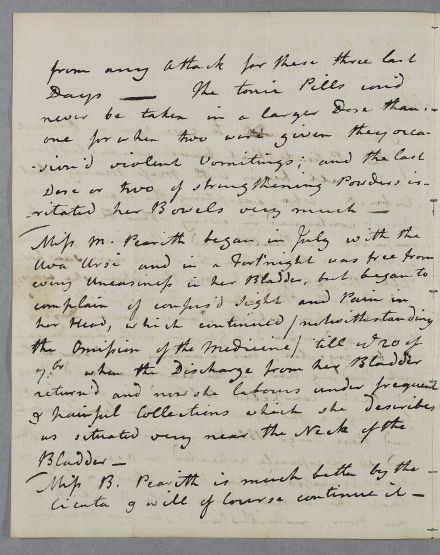 from any Attack for these three last
Days — The tonic Pills cou'd
never be taken in a larger Dose than
one for when two were given they occa-
-sion'd violent Vomitings; and the last
Dose or two of strengthening Powders ir-
-ritated her Bowels very much —
Miss M. Pearith began in July with the
Uva Ursi and in a Fortnight was free from
every Uneasiness in her Bladder, but began to
complain of confus'd Sight and Pain in
her Head, which continued / notwithstanding
the Omission of the Medicine / till 20 of
7.br when the Discharge from her Bladder
return'd and now she labours under frequent
& painful Collections which she describes
as situated very near the Neck of the
Bladder —
Miss B. Pearith is much better by the
Cicuta & will of Course continue it —